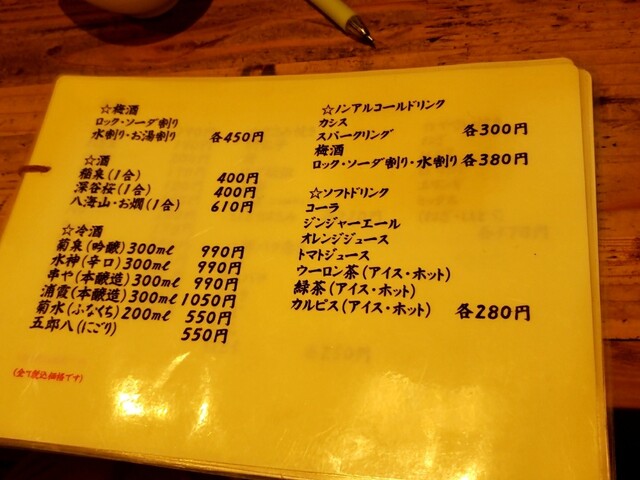 ☆梅酒
ロック・ソーダ割り
水割り・お湯割り 各450円
☆酒
稲泉(1合) 400円
深谷桜(1合) 400円
八海山・お燗(1合) 610円
☆冷酒
菊泉(吟醸)300mℓ 990円
水神(辛口)300mℓ 990円
串や(本醸造)300mℓ 990円
浦霞(本醸造)300mℓ 1050円
菊水(ふなくち)200mℓ 550円
五郎八(にごり) 550円
(全て税込価格です)
☆ノンアルコールドリンク
カシス
スパークリング 各300円
梅酒
ロック・ソーダ割り・水割り 各380円
☆ソフトドリンク
コーラ
ジンジャーエール
オレンジジュース
トマトジュース
ウーロン茶(アイス・ホット)
緑茶(アイス・ホット)
カルピス(アイス・ホット) 各280円